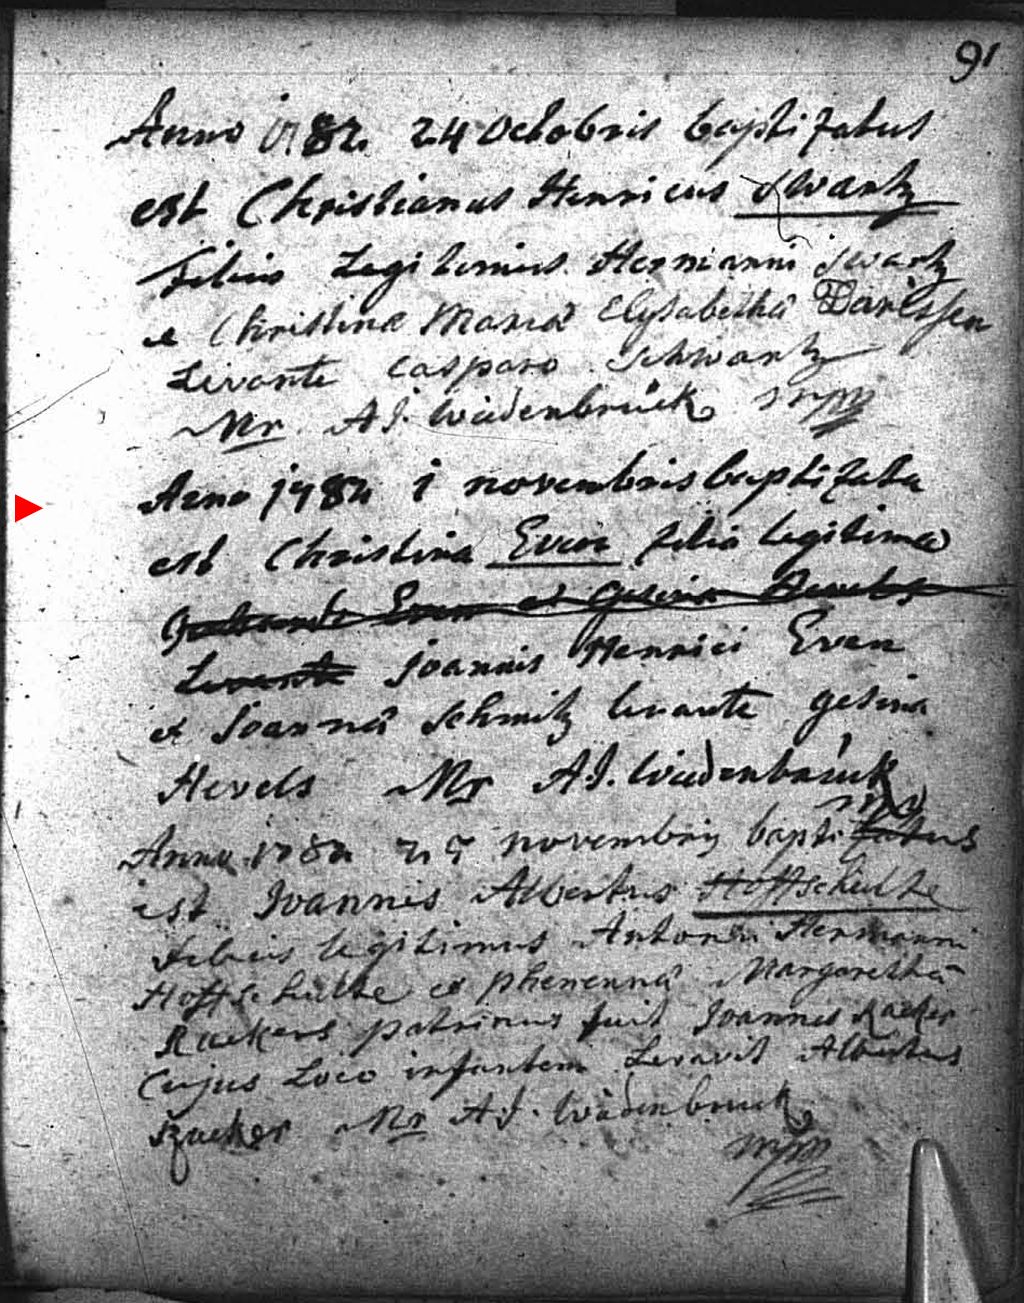 91
Anno 1782 24 octobris baptizatus
est Christianus Henricus Swartz
filius Legitimus Hermanni Swartz
et Christinæ Maria Elysabetha
Levante Casparo Schwartz
Mr AJ. Wiedenbrück mpp
Anno 1782 1 novembris baptizata
est Christina Even filia legitima
Even et Gesina
Levante Joannis Henrici Even
et Joanna Schmitz levante gesina
Hevels Mr AJ. Wiedenbrück
mpp
Anno 1782 25 novembris baptizatus
est Joannes Albertus Hoffschulte
Filius legitimus Antonii Hermanni
Hoffschulte et phenenna Margaretha
Rackers patrinus fuit Joannes Racker
Cujus Loco infantem Levavit Albertus
Racker Mr AJ. Wiedenbruck
mpp